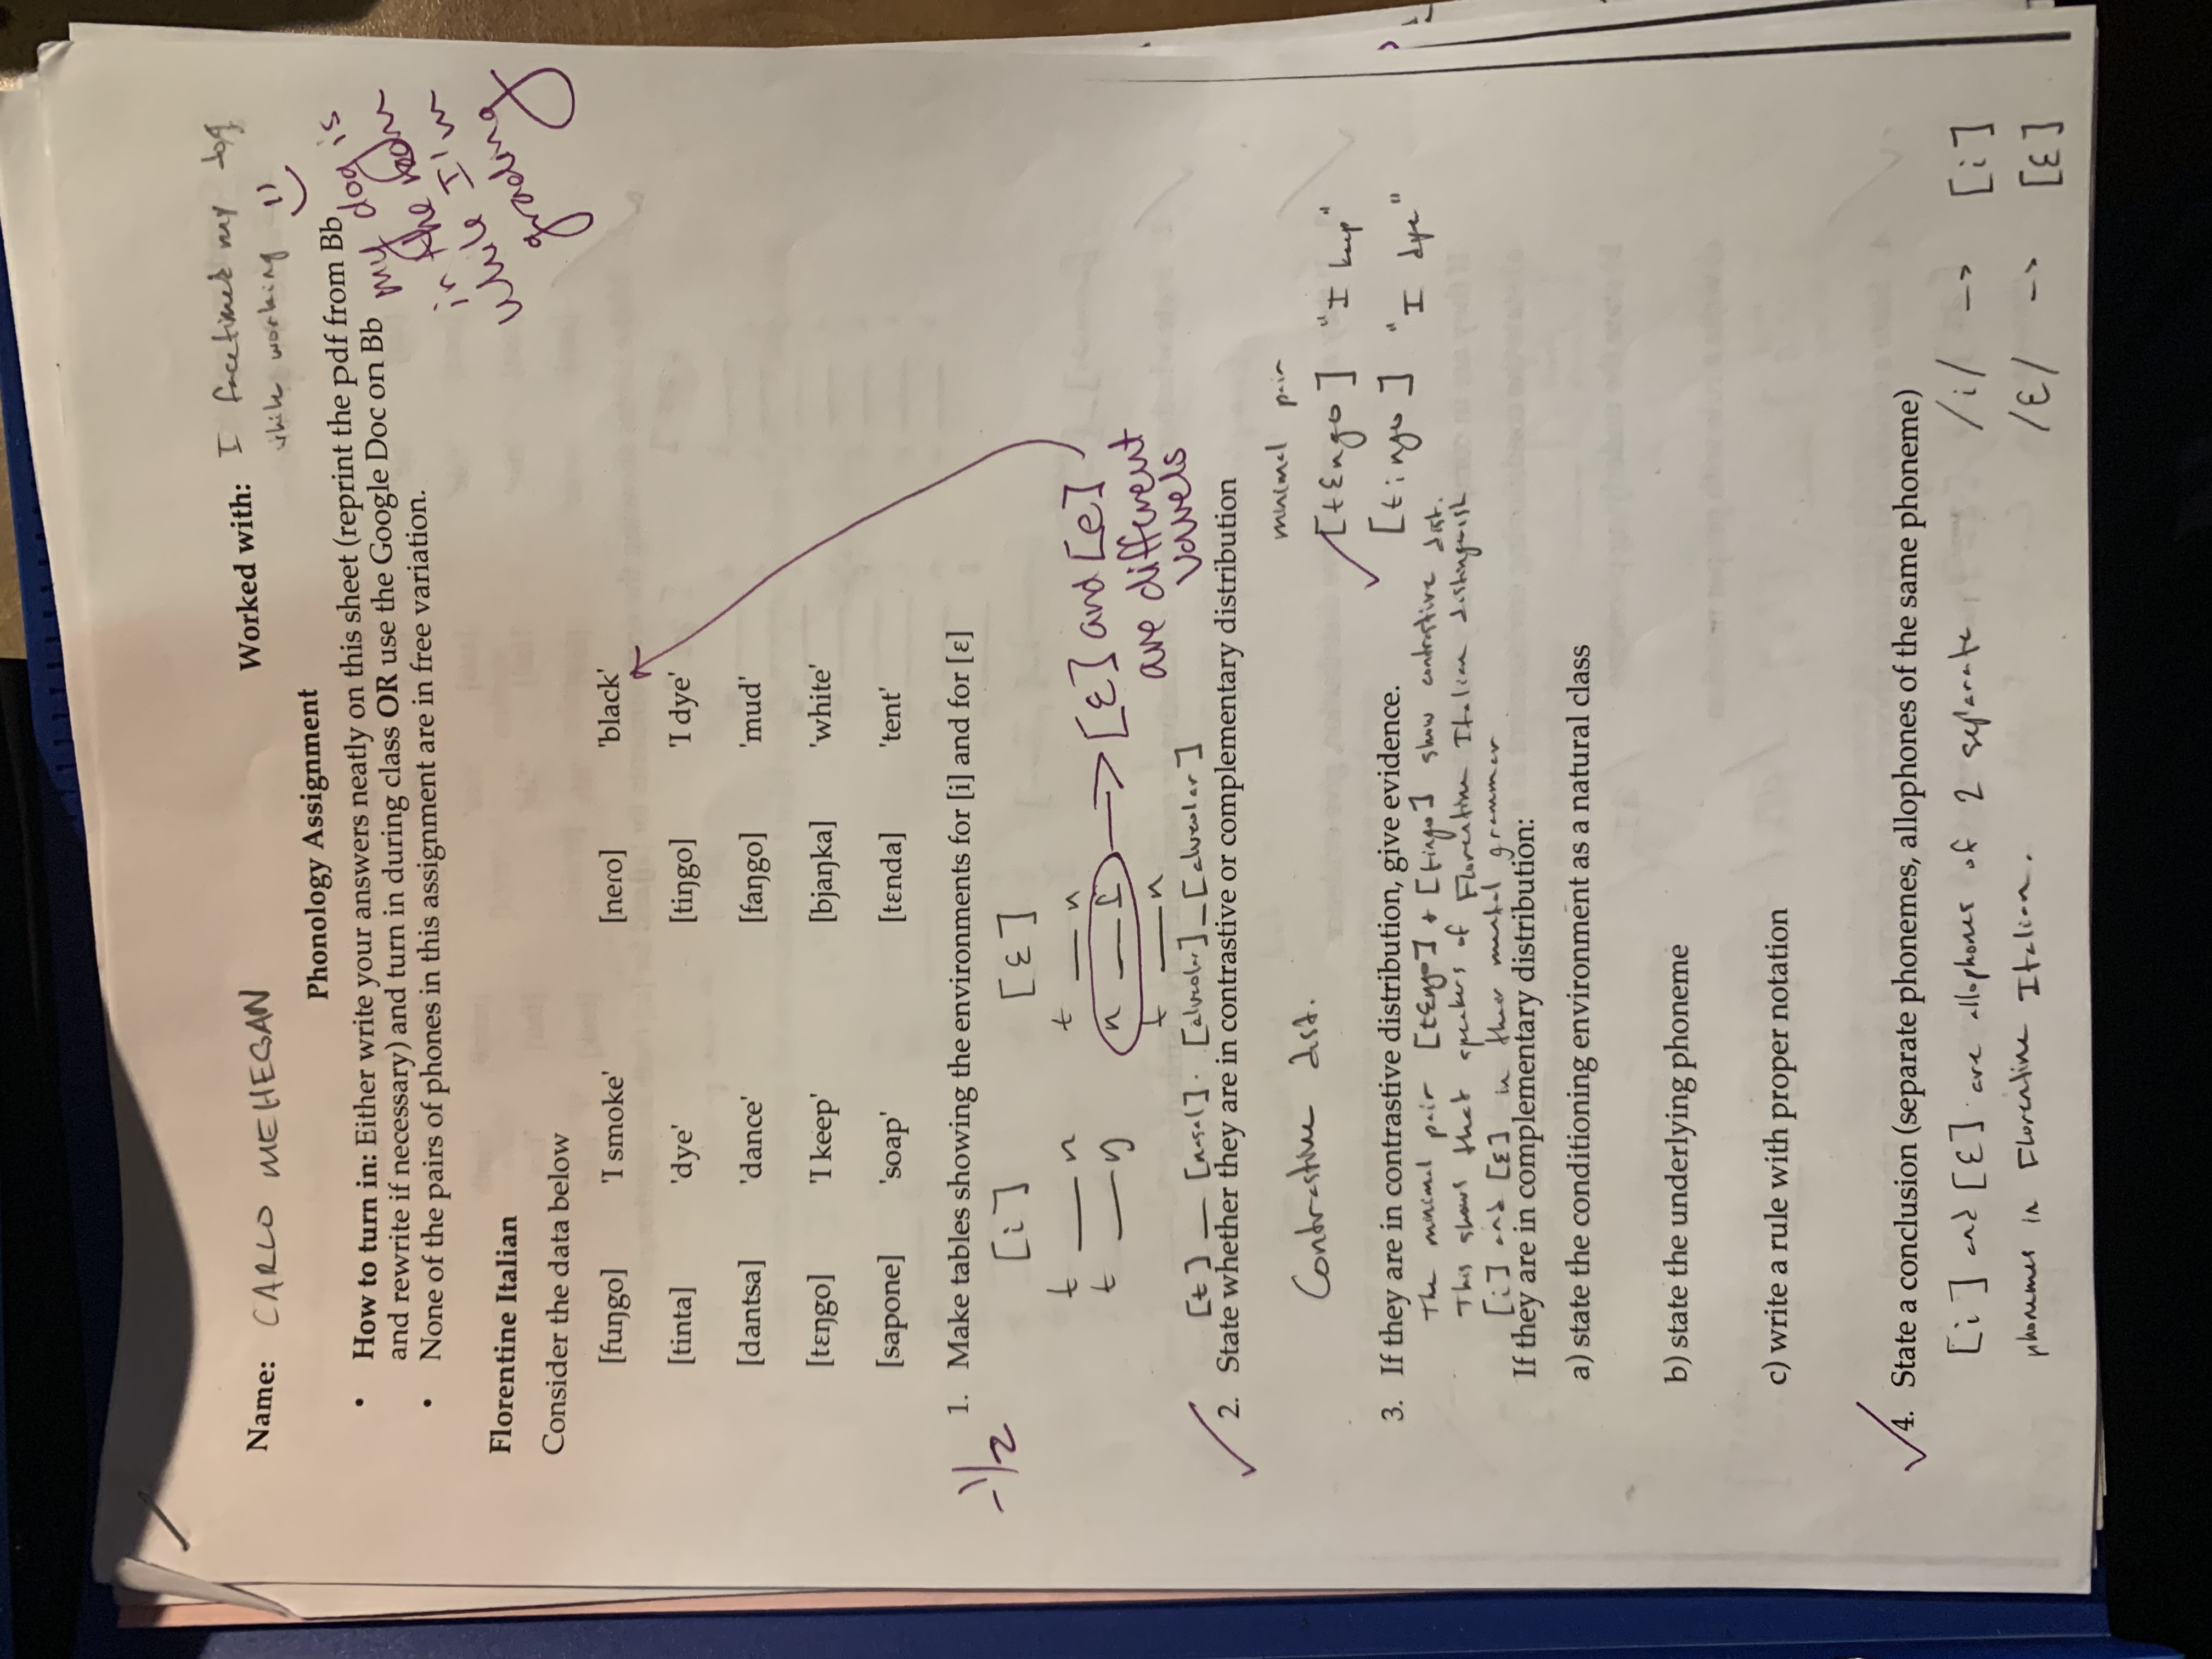 Name: CARLO MEHEGAN
Worked with: I facetimed my dog
while working :)
Phonology Assignment
• How to turn in: Either write your answers neatly on this sheet (reprint the pdf from Bb
and rewrite if necessary) and turn in during class OR use the Google Doc on Bb
• None of the pairs of phones in this assignment are in free variation.
my dog is
in the room
while I'm
grading
Florentine Italian
Consider the data below
[fuŋgo] 'I smoke' [nero] 'black'
[tinta] 'dye' [tiŋgo] 'I dye'
[dantsa] 'dance' [faŋgo] 'mud'
[tɛŋgo] 'I keep' [bjaŋka] 'white'
[sapone] 'soap' [tɛnda] 'tent'
-1/2
1. Make tables showing the environments for [i] and for [ɛ]
[i] [ɛ]
t __ n t __ n
t __ ŋ n __ ɾ
t __ n
[ɛ] and [e]
are different
vowels
[t] __ [nasal]. [alveolar] _ [alveolar]
2. State whether they are in contrastive or complementary distribution
Contrastive dist.
minimal pair
[tɛngo] "I keep"
[tingo] "I dye"
3. If they are in contrastive distribution, give evidence.
The minimal pair [tɛngo] + [tingo] show contrastive dist.
This shows that speakers of Florentine Italian distinguish
[i] and [ɛ] in their mental grammar
If they are in complementary distribution:
a) state the conditioning environment as a natural class
b) state the underlying phoneme
c) write a rule with proper notation
4. State a conclusion (separate phonemes, allophones of the same phoneme)
[i] and [ɛ] are allophones of 2 separate
phonemes in Florentine Italian.
/i/ --> [i]
/ɛ/ --> [ɛ]